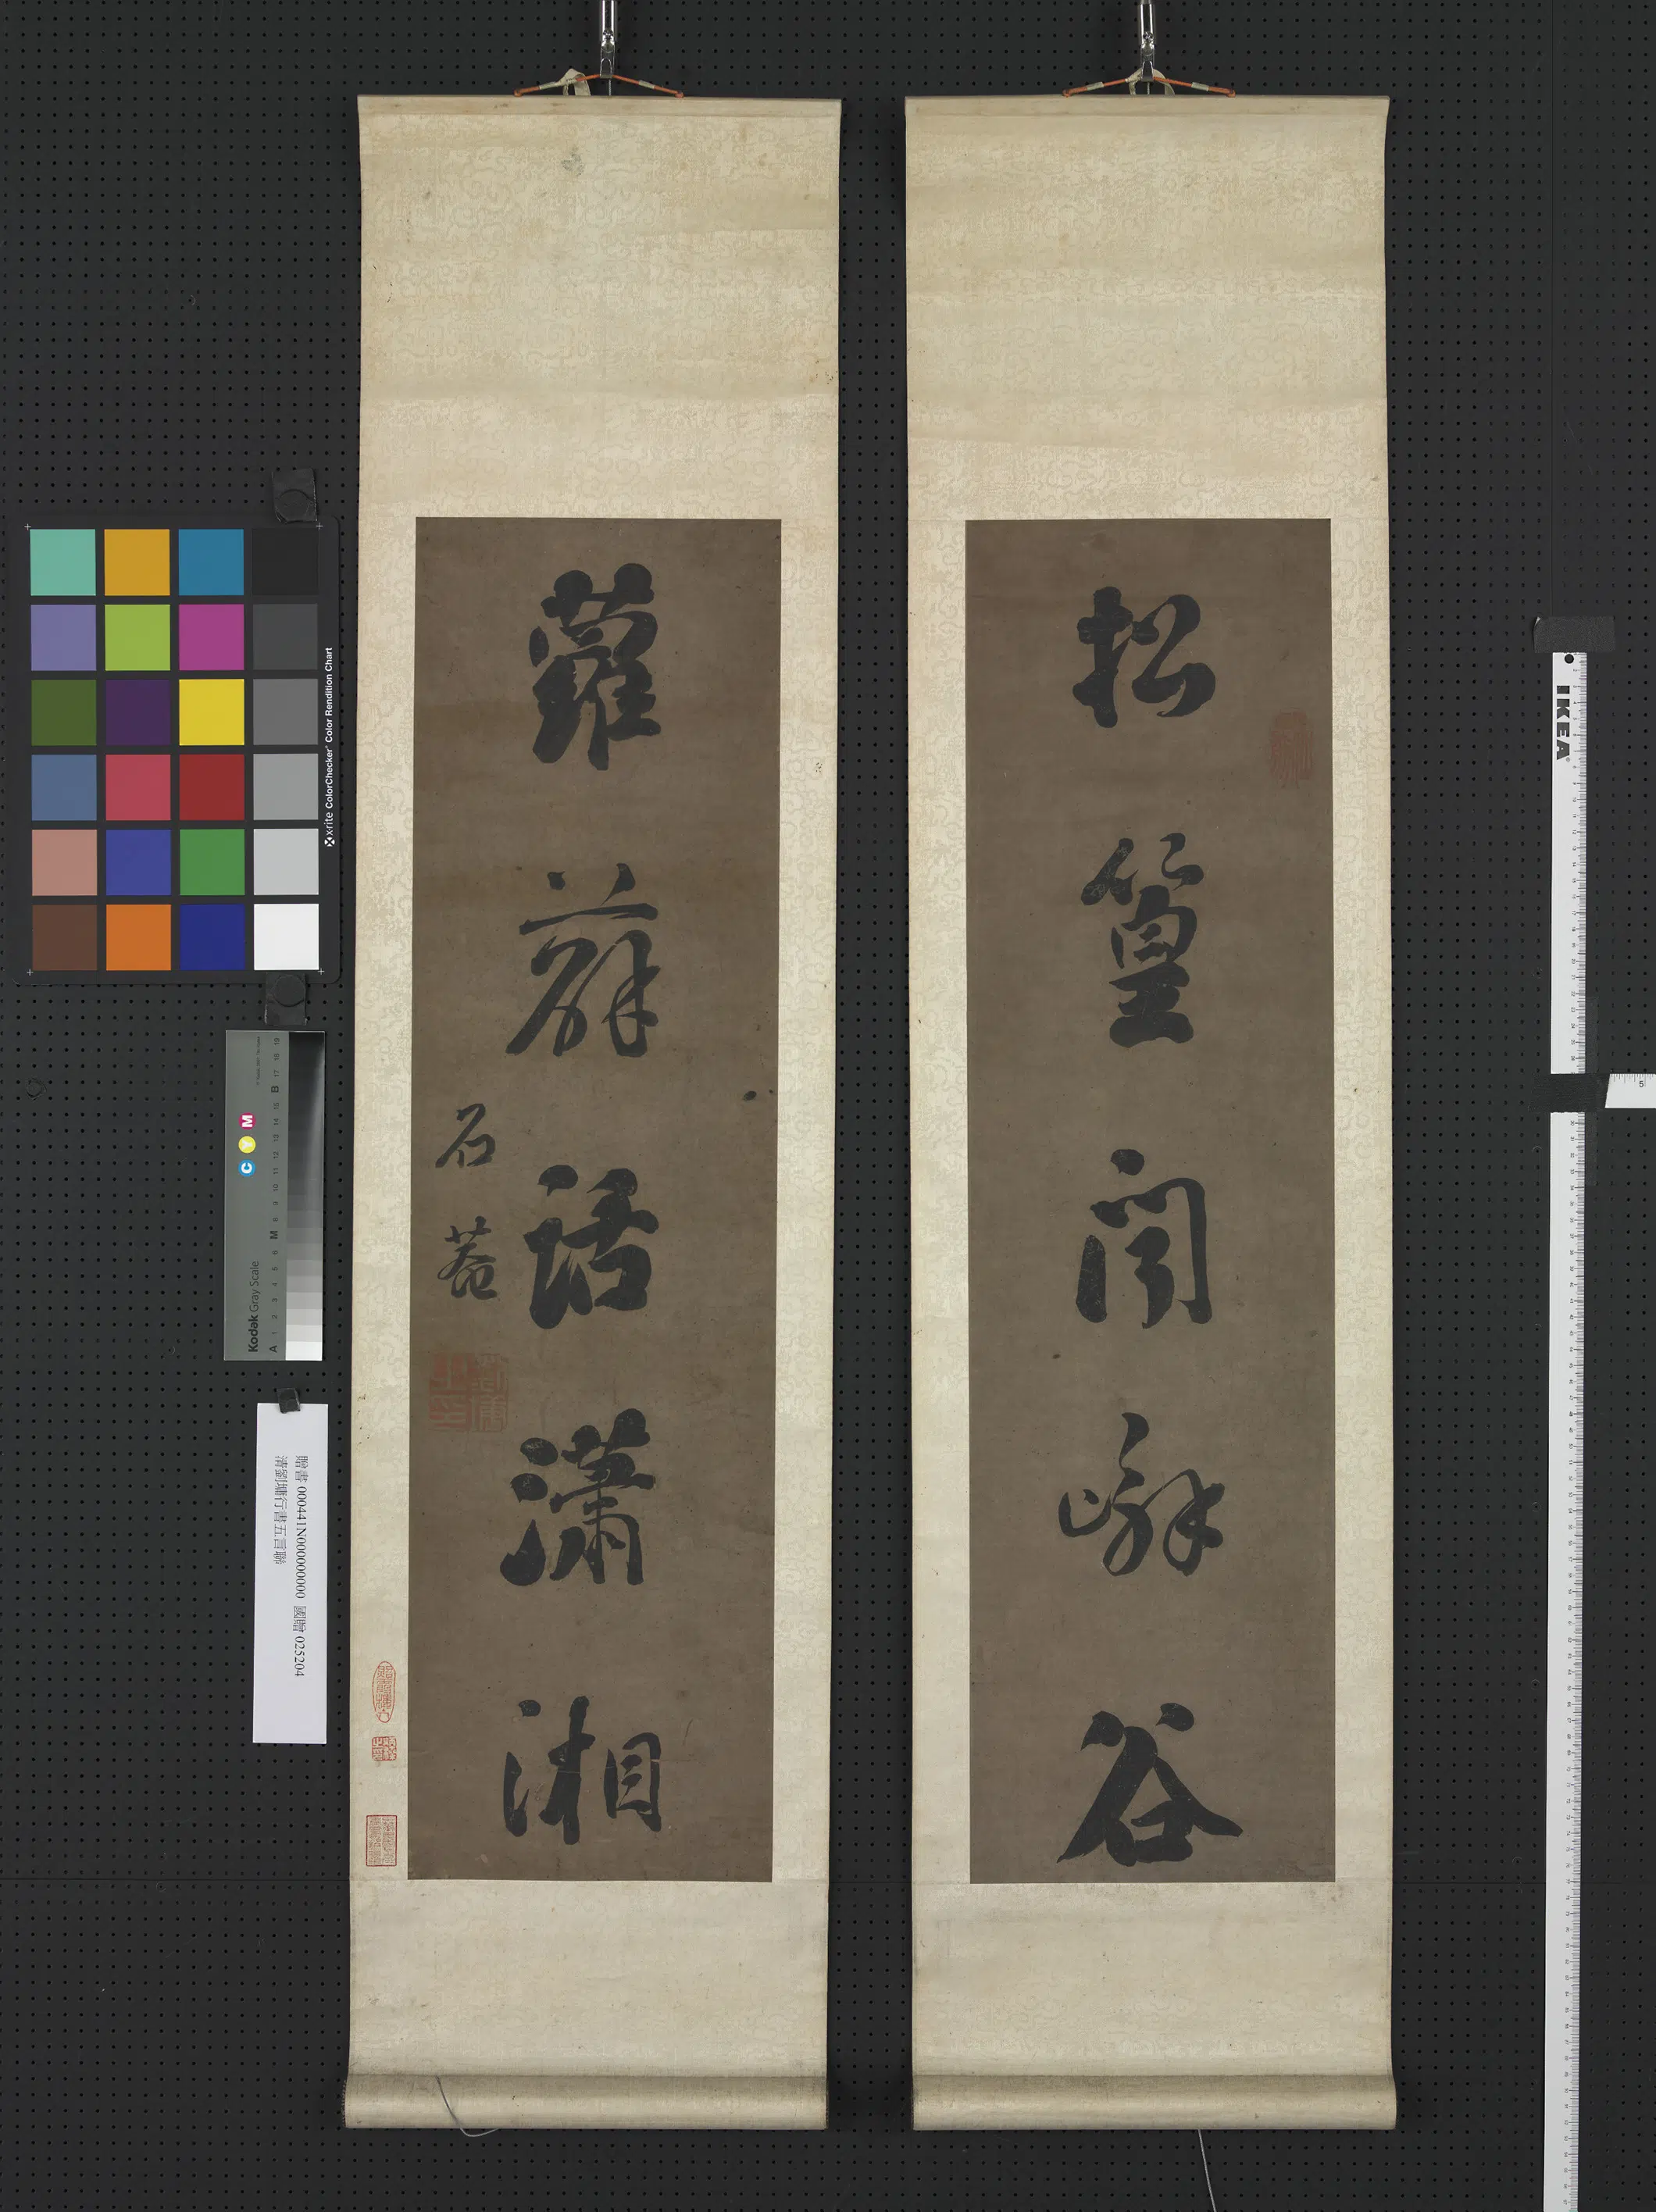 松篁聞嶰谷
蘿薜話瀟湘
石菴
劉墉之印
贈書 000441N000000000 國贈 025204
清劉墉行書五言聯
x-rite ColorChecker Color Rendition Chart
Kodak Gray Scale
C Y M
A 1 2 3 4 5 6 M 8 9 10 11 12 13 14 15 B 17 18 19
IKEA
5